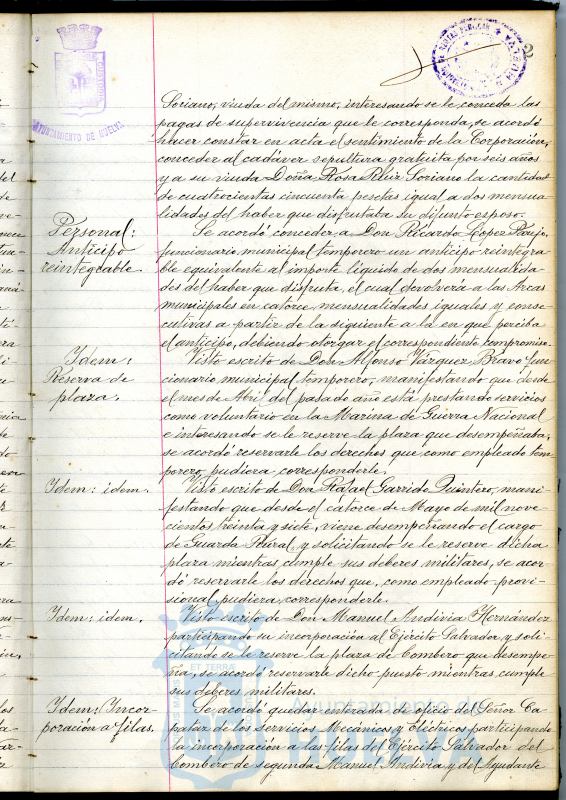 2
AYUNTAMIENTO DE HUELVA
Soriano, viuda del mismo, interesando se le conceda las
pagas de supervivencia que le corresponda, se acordó
hacer constar en acta el sentimiento de la Corporación,
conceder al cadáver sepultura gratuita por seis años
y a su viuda Doña Rosa Ruiz Soriano la cantidad
de cuatrocientas cincuenta pesetas igual a dos mensua-
lidades del haber que disfrutaba su difunto esposo.
Personal:
Anticipo
reintegrable.
Se acordó conceder a Don Ricardo López
funcionario municipal temporero un anticipo reintegra-
ble equivalente al importe líquido de dos mensualida-
des del haber que disfruta, el cual devolverá a las Arcas
municipales en catorce mensualidades iguales y conse-
cutivas a partir de la siguiente a la en que perciba
el anticipo, debiendo otorgar el correspondiente compromiso.
Idem:
Reserva de
plaza.
Visto escrito de Don Alfonso Vázquez Bravo fun-
cionario municipal temporero, manifestando que desde
el mes de Abril del pasado año está prestando servicios
como voluntario en la Marina de Guerra Nacional
e interesando se le reserve la plaza que desempeñaba,
se acordó reservarle los derechos que como empleado tem-
porero pudiera corresponderle.
Idem: idem.
Visto escrito de Don Rafael Garrido Quintero, mani-
festando que desde el catorce de Mayo de mil nove-
cientos treinta y siete, viene desempeñando el cargo
de Guarda Rural, y solicitando se le reserve dicha
plaza mientras cumple sus deberes militares, se acor-
dó reservarle los derechos que, como empleado provi-
sional, pudiera corresponderle.
Idem: idem.
Visto escrito de Don Manuel Andivia Hernández
participando su incorporación al Ejército Salvador y soli-
citando se le reserve la plaza de Bombero que desempe-
ña, se acordó reservarle dicho puesto mientras cumple
sus deberes militares.
Idem: Incor-
poración a filas.
Se acordó quedar enterada de oficio del Señor Ca-
pataz de los servicios Mecánicos y Eléctricos participando
la incorporación a las filas del Ejército Salvador del
Bombero de segunda Manuel Andivia y del Ayudante